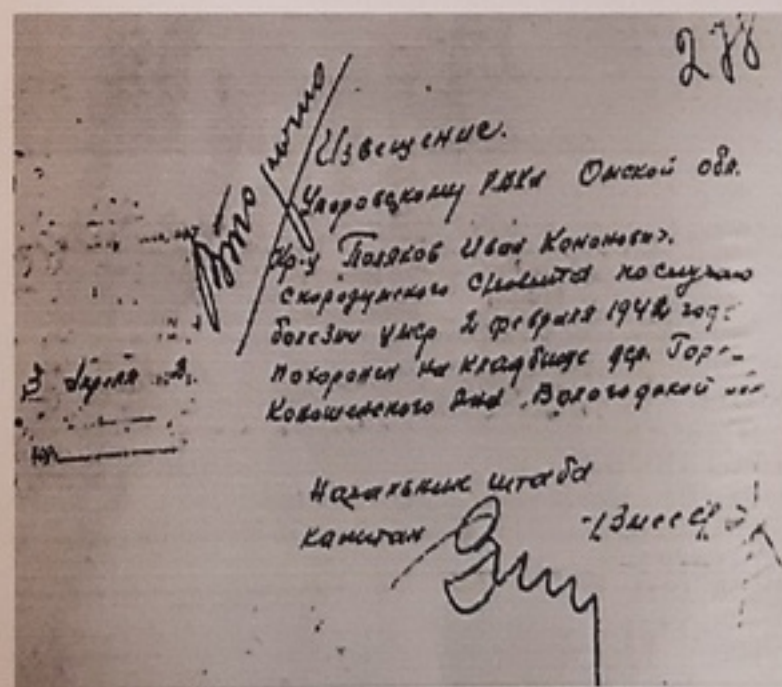 278
Вторично
Извещение.
Упоровскому РВКа Омской обл.
Кр-ц Поляков Иван Кононович.
Скородумского С/Совета по случаю
болезни умер 2 февраля 1942 года
похоронен на кладбище дер.
Вологодской
3 Апреля 2.
Начальник штаба
капитан